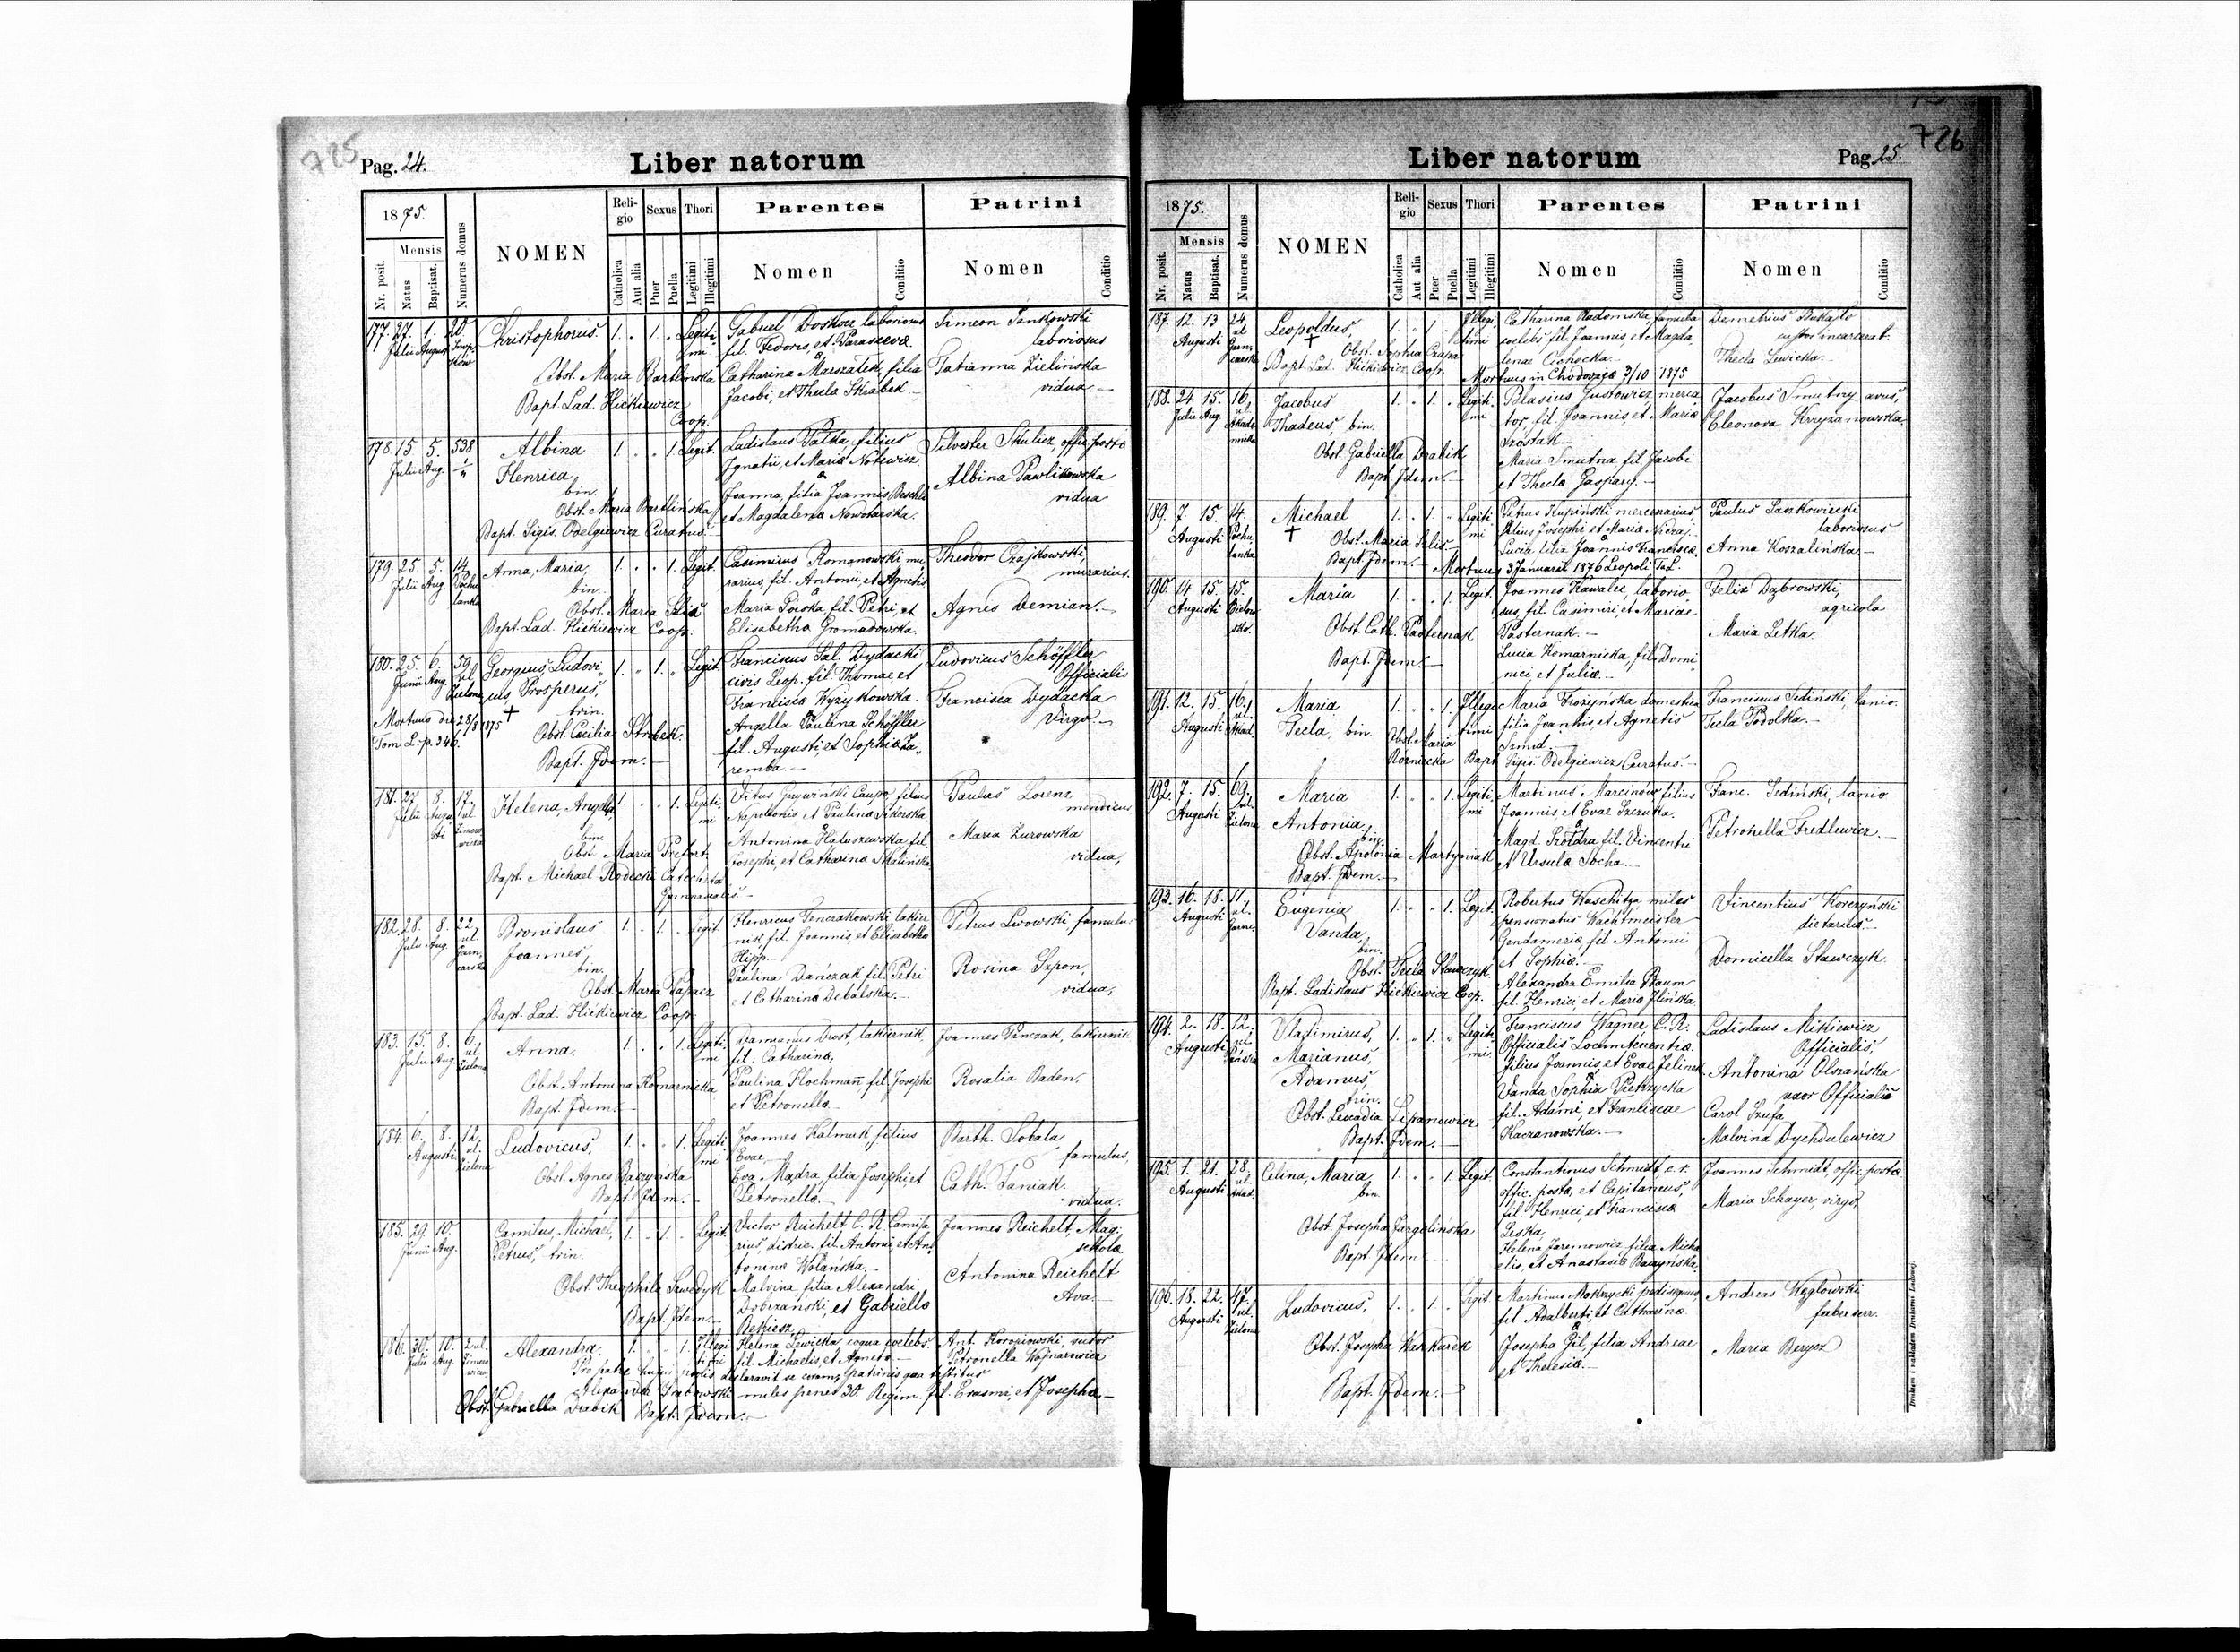 725
Pag. 24.
Liber natorum
1875.
Mensis
Nr. posit.
Natus
Baptisat.
Numerus domus
NOMEN
Religio
Catholica
Aut alia
Sexus
Puer
Puella
Thori
Legitimi
Illegitimi
Parentes
Nomen
Conditio
Patrini
Nomen
Conditio
177. 27. 1. 20 Christophorus 1. " 1. " Legiti Gabriel laboriosus Simeon Jankowski
Julii August mi fil. Fedoris, et Parascevæ laboriosus
Obst. Maria Bartlińska Catharina Marszałek, filia Tatianna Zielińska
Bapt. Lad. Hickiewicz Jacobi, et Thecla Skrabek vidua.
Coop.
178. 15. 5. 538 Albina 1 " " 1. Legit. Ladislaus Pałka, filius Silvester Skulicz, offic. postæ
Julii Aug. Henrica Ignatii, et Maria Notewicz Albina Pawlikowska
bin. & vidua
Obst. Maria Bartlińska Joanna, filia Joannis
Bapt. Sigis. Odelgiewicz Curatus. et Magdalena Nowotarska.
179. 25. 5. 14 Anna, Maria, 1. " " 1. Legit. Casimirus Romanowski mu Theodor Czajkowski,
Julii Aug bin. rarius, fil. Antonii, et Agnetis murarius.
Obst. Maria Selis Maria fil. Petri, et Agnes Demian.
Bapt. Lad. Hickiewicz Coop. Elisabetha Gromadowska.
180. 25. 6. 59 Georgius, Ludovi 1. " 1. " Legit. Franciscus Sal. Dydacki Ludovicus Schöffler
Junii Aug. ul Zielona cus, Prosperus, civis Leop. fil. Thomae, et Officialis
trin. Francisca Wyżykowska. Francisca Dydacka
Mortuus die 28/8 1875 † Angella Paulina Schöffler Virgo.
Tom L. p. 246. Obst. Cæcilia fil. Augusti, et Sophiæ Za
Bapt. Idem. remba.
181. 27 8. 17 Helena, Angela 1. " " 1. Legiti Vitus Caupo, filius Paulus Lorenz
Julii Augusti ul. Zimoro wicza bin. mi Napoleonis et Paulina Sikorska. mendicus
Obst. Maria Antonina Hałuszewska fil. Maria Żurowska
Bapt. Michael Rodecki Catecheta Josephi, et Catharina Malińska vidua,
Gymnasialis.
182. 28. 8. 22, Bronislaus 1. " 1. " Legit Henricus lakier Petrus Lwowski, famulus
Julii Aug. ul. Garn carska Joannes, nik, fil. Joannis, et Elisabetha Rosina Szpon,
bin. Hipp. vidua,
Obst. Maria Paulina Dańczak fil. Petri
Bapt. Lad. Hickiewicz Coop. et Catharina Debalska.
183. 15. 8. 6. Anna. 1. " " 1. Legiti Damianus Drost, lakiernik Joannes lakiernik
Julii Aug. ul Zielona mi fil. Catharinæ, Rosalia Baden,
Obst. Antonina Komarnicka Paulina Hochmañ fil. Josephi
Bapt. Idem. et Petronella
184. 6. 8. 12, Ludovicus, 1. " " 1. Legiti Joannes Kalmuk, filius Barth. Sobala
Augusti. ul. Zielona mi Evae. famulus,
Obst. Agnes Eva Mądra, filia Josephi et Cath. Paniak.
Bapt. Idem. Petronella. vidua.
185. 29. 10. Camilus, Michael, 1. " 1. " Legit. Victor Reichelt C. R. Joannes Reichelt, Mag.
Junii Aug. Petrus, trin. rius distric. fil. Antonii, et An scholæ
tonina Wolańska. Antonina Reichelt
Obst. Theophila Malvina filia Alexandri Ava.
Bapt. Idem. Dobrzański, et Gabriella
186. 30. 10. 2 ul. Alexandra. 1. " " 1. Illegi Helena Lewicka coqua coelebs Ant. vector
Julii Aug. Zimoro wicza timi fil. Michaelis, et Agneta Petronella Wojnarowicz
Pro patre hujus prolis declaravit se coram patrinis qua testibus
Alexander Grabowski miles penes 30. Regim. fil. Erasmi, et Josepha.
Obst. Gabriella Drabik Bapt. Idem.
726
Liber natorum
Pag. 25.
1875.
Mensis
Nr. posit.
Natus
Baptisat.
Numerus domus
NOMEN
Religio
Catholica
Aut alia
Sexus
Puer
Puella
Thori
Legitimi
Illegitimi
Parentes
Nomen
Conditio
Patrini
Nomen
Conditio
187. 12. 13 24 Leopoldus, 1. " 1. " Illegi Catharina Radomska, famula Demetrius
Augusti ul Garn carska † timi coelebs fil. Joannis et Magda custos incarcerat.
Obst. Sophia lenae Cichocka. Thecla Lewicka.
Bapt. Lad. Hickiewicz Coop. Mortuus in 3/10 1875
188. 24. 15. 16, Jacobus 1. " 1. " Legiti Blasius Justowicz, merca Jacobus Smutny avus,
Julii Aug. ul. Akade micka Thadeus bin. mi tor, fil. Joannis, et Maria Eleonora Krzyzanowska
Szostak
Obst. Gabriella Drabik Maria Smutna fil. Jacobi
Bapt. Idem. et Thecla Gaspary.
189. 7. 15. 14. Michael 1. " 1. " Legiti Petrus Kupiński mercenarius Paulus Laszkowiecki
Augusti † mi filius Josephi et Maria laboriosus
Obst. Maria Selis Lucia filia Joannis Anna Koszalińska.
Bapt. Idem. Mortuus 3 Januarii 1876 Leopoli
190. 14 15 15. Maria 1. " " 1. Legit. Joannes Kawalec, laborio Felix Dąbrowski,
Augusti sus, fil. Casimiri, et Mariae agricola
Obst. Cath. Pasternak Pasternak. Maria Letka.
Bapt. Idem. Lucia Komarnicka, fil. Domi
nici, et Julia.
191. 12. 15. 16, Maria 1. " " 1. Illegi Maria domestica Franciscus Sediński, lanio.
Augusti ul. Akad. Tecla, bin. timi filia Joannis, et Agnetis Tecla Podolka.
Obst. Maria Szmid.
Róznicka Bapt Sigis. Odelgiewicz Curatus.
192. 7. 15. 69. Maria 1. " " 1. Legiti Martinus Marcinow filius Franc. Sediński, lanio
Augusti ul. Zielona Antonia, mi Joannis et Evae Szczuka. Petronella Fredlewicz.
bin. &
Obst. Apolonia Martyniak Magd. Szoldra, fil. Vincentii
Bapt. Idem. et Ursula Socha.
193. 16. 18. 11, Eugenia 1. " " 1. Legit. Robertus Waschitza miles Vincentius Korczyński
Augusti ul. Garnc. Vanda, pensionatus Wachtmeister dietarius.
bin. Gendameriæ, fil. Antonii Domicella Stawczyk
Obst. Tecla Stawczyk. et Sophia.
Bapt. Ladislaus Hickiewicz Coop. Alexandra Emilia Baum
fil. Henrici, et Maria Ilińska.
194. 2. 18. 12, Vladimirus, 1. " 1. " Legiti Franciscus Wagner, C. R. Ladislaus Mikiewicz
Augusti ul Pańska Marianus, mi. Officialis Locumtenentiæ Officialis,
Adamus, filius Joannis, et Evae Jelinek Antonina Olszańska
trin. Vanda Sophia Pietrzycka uxor Officialis
Obst. Leocadia Lipanowicz fil. Adami, et Franciscae Carol
Bapt. Idem. Kaczanowska. Malvina Dychdulewicz
195. 1. 21. 28. Celina, Maria, 1. " " 1. Legit. Constantinus Schmidt, c. r. Joannes Schmidt, offic. postæ
Augusti ul. Akad. bin. offic. postæ, et Capitaneus, Maria Schayer, virgo,
fil. Henrici, et Francisca
Obst. Josepha Gargolińska Leska,
Bapt Idem. Helena Jaremowicz, filia Micha
elis, et Anastasia Baczyńska.
196. 18. 22. 47. Ludovicus, 1. " 1. " Legit Martinus Mokrzycki pedisequus, Andreas Węglowski
Augusti ul. Zielona fil. Adalberti, et Catharina faber serr.
&
Obst. Josepha Josepha Gil, filia Andreae Maria Berycz
et Theresia.
Bapt. Idem.
Drukiem i nakładem Drukarni Ludowej.